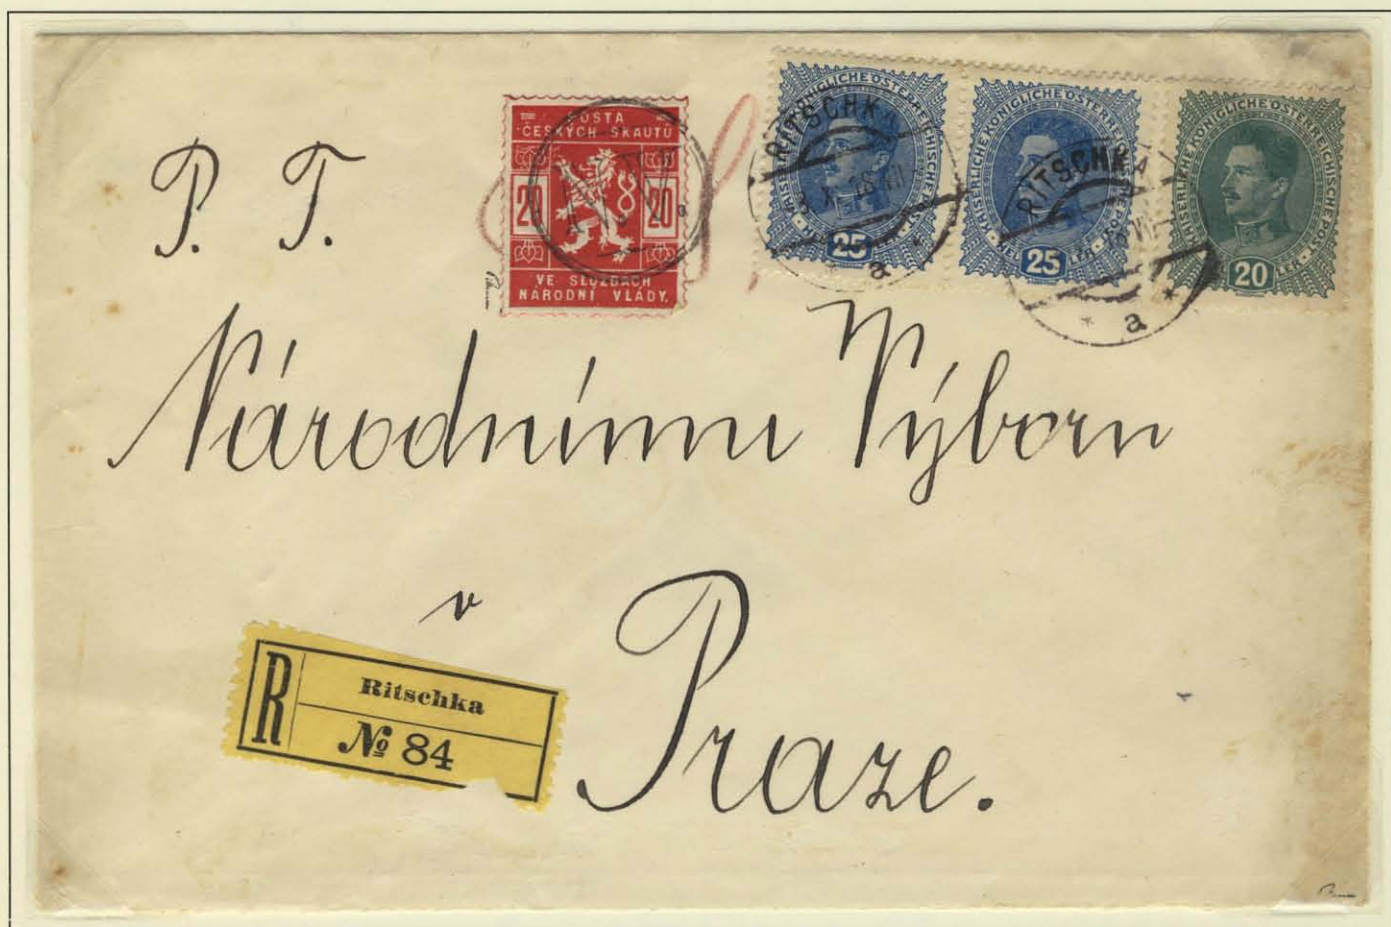 POSTA
ČESKÝCH SKAUTŮ
20 20
VE SLUŽBÁCH
NÁRODNÍ VLÁDY.
KAISERLICHE KÖNIGLICHE ÖSTERREICHISCHE POST
25
HELLER
RITSCHKA
a
KAISERLICHE KÖNIGLICHE ÖSTERREICHISCHE POST
25
HELLER
RITSCHKA
* a *
KAISERLICHE KÖNIGLICHE ÖSTERREICHISCHE POST
20
P. T.
Národnímu Výboru
v
Praze.
R
Ritschka
№ 84